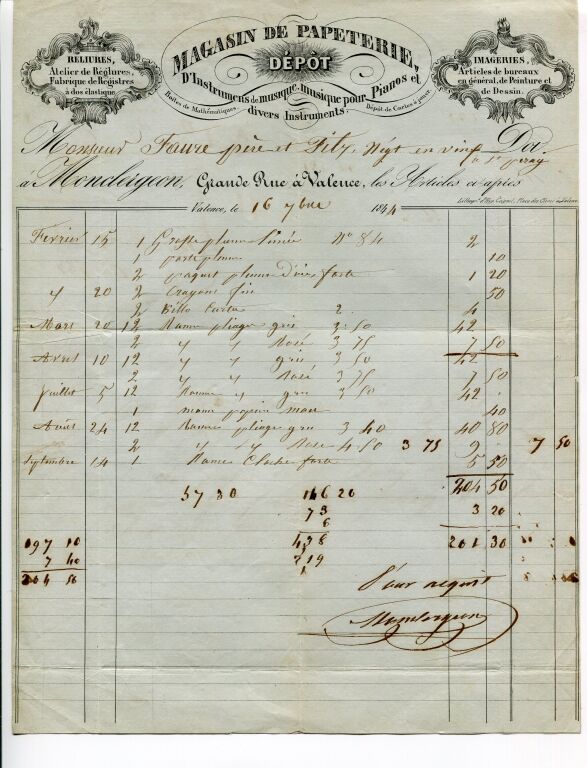 RELIURES,
Atelier de Réglures,
Fabrique de Registres
à dos élastique.
MAGASIN DE PAPETERIE,
DÉPÔT
D'Instrumens de musique, musique pour Pianos et
divers Instruments,
Boîtes de Mathématiques,
Dépôt de Cartes à jouer.
IMAGERIES,
Articles de bureaux
en général, de Peinture et
de Dessin.
Monsieur Faure père et Fils, Négt en vins Doit
à St Péray
à Mondeigeon, Grande Rue à Valence, les Articles ci-après
Valence, le 16 7bre 1844
Février 15 1 Grosse plume N° 84 2
1 porte plume 10
2 paquet plume d'oies forte 1 20
" 20 2 Crayons fin 50
2 2. 4
Mars 20 12 Rame pliage gris 3.50 42
2 " " Rosé 3 75 7 50
Avril 10 12 " " gris 3 50 42
2 " " Rosé 3 75 7 50
Juillet 5 12 Rame " gris 3 50 42
1 main papier 40
Août 24 12 Rames pliage gris 3 40 40 80
2 " " Rose 4-50 3 75 9 7 50
Septembre 14 1 Rame Cloche forte 5 50
204 50
37 30 146 20
73 3 20
6
438 201 30
197 10
7 40 719
204 50
Pour acquit
Mondeigeon